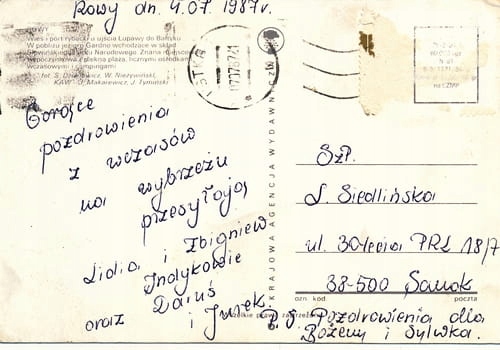 Rowy dn. 4.07.1987r.
ROWY
Wieś i port rybacki u ujścia Łupawy do Bałtyku
W pobliżu jezioro Gardno wchodzące w skład
Słowińskiego Parku Narodowego. Znana miejscowość
wypoczynkowa z piękną plażą, licznymi ośrodkami
wczasowymi i campingami
fot. S. W. Nieżywiński,
KAW J. Tymiński
USTKA
Gorące
pozdrowienia
z wczasów
na wybrzeżu
przesyłają
Lidia i Zbigniew
Indykowie
oraz Daruś
i Jurek.
KRAJOWA AGENCJA WYDAWNICZA
Szp.
J. Siedlińska
ul. 30-lecia PRL 18/7
38-500 Sanok
ozn kod poczta
Wszelkie prawa zastrzeżone
P.S. Pozdrowienia dla
Bożeny i Sylwka.